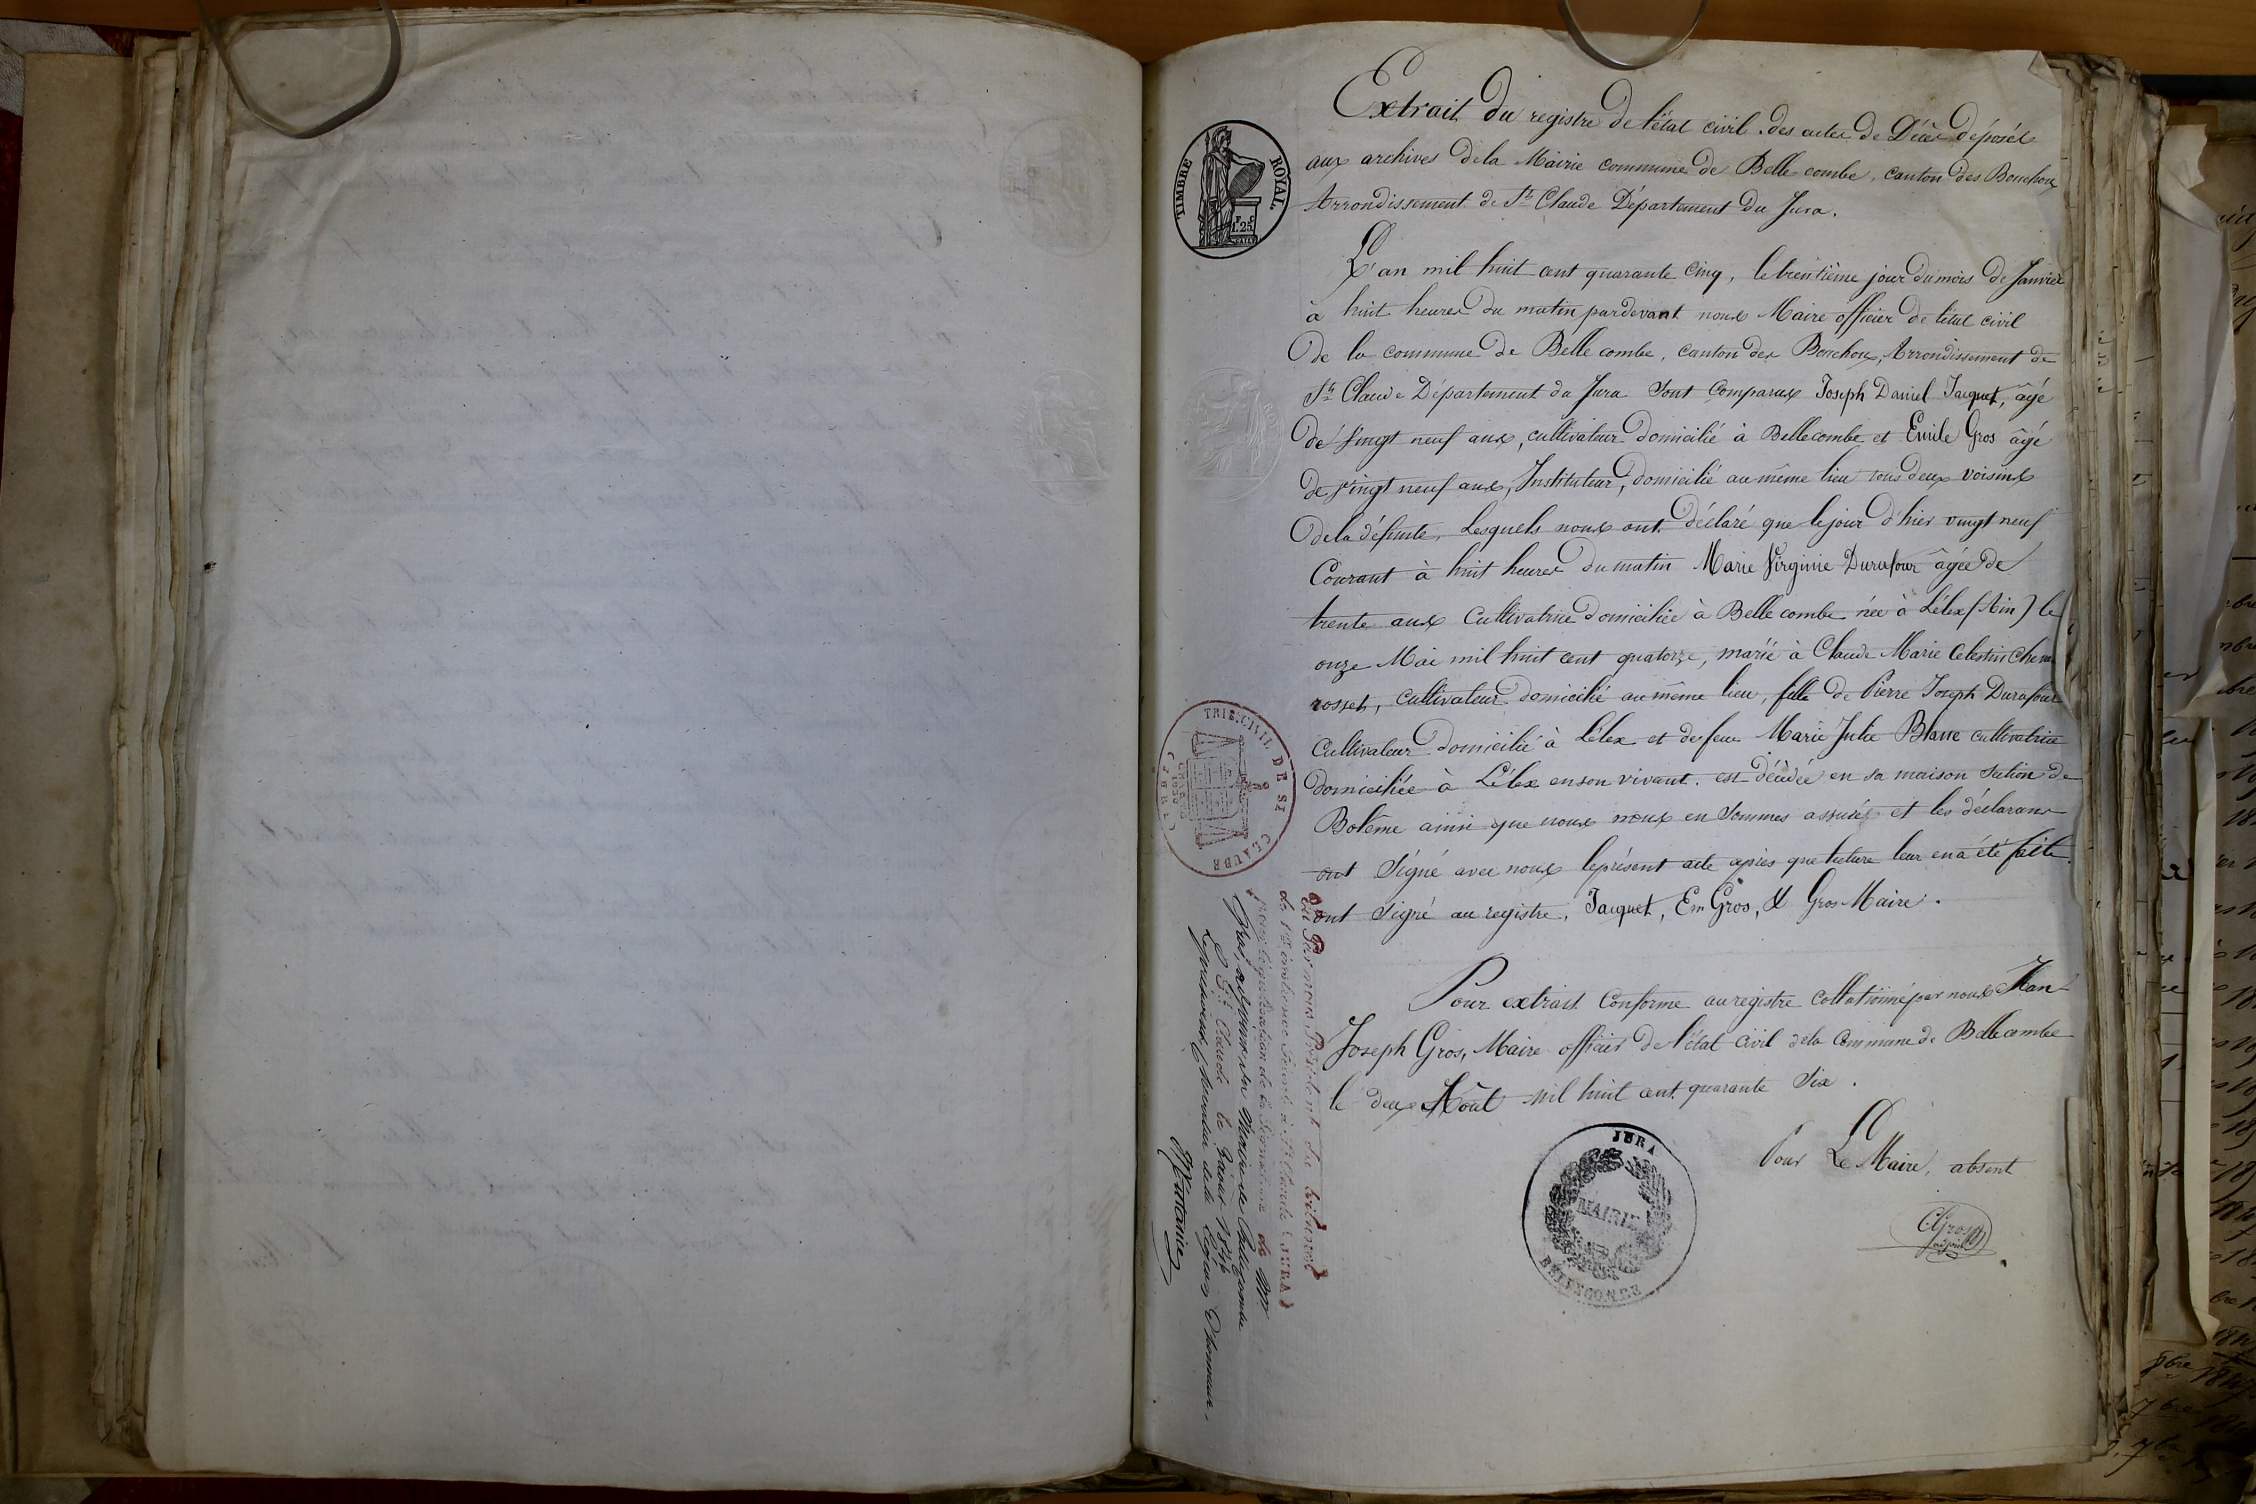 Extrait du registre de l'état civil des actes de Décès déposés
aux archives de la Mairie commune de Belle combe, canton des Bouchoux
Arrondissement de St Claude Département du Jura.
TIMBRE ROYAL.
1f 25
L'an mil huit cent quarante cinq, le trentième jour du mois de Janvier
à huit heures du matin pardevant nous Maire officier de l'état civil
de la commune de Belle combe, canton des Bouchoux, Arrondissement de
St Claude Département du Jura sont comparus Joseph Daniel Jacquet, âgé
de vingt neuf ans, cultivateur domicilié à Bellecombe et Emile Gros âgé
de vingt neuf ans, Instituteur, domicilié au même lieu tous deux voisins
de la défunte, Lesquels nous ont déclaré que le jour d'hier vingt neuf
Courant à huit heures du matin Marie Virginie Durafour âgée de
trente ans cultivatrice domiciliée à Belle combe née à Lélex (Ain) le
onze Mai mil huit cent quatorze, mariée à Claude Marie Celestin Chena
rosset, cultivateur domicilié au même lieu, fille de Pierre Joseph Durafour
Cultivateur domicilié à Lélex et de feue Marie Julie Blanc cultivatrice
domiciliée à Lélex en son vivant. est décédée en sa maison section de
Bolême ainsi que nous nous en sommes assurés et les déclarans
ont signé avec nous le présent acte après que lecture leur en a été faite.
ont signé au registre, Jacquet, Em Gros, & Gros Maire.
Pour extrait Conforme au registre collationné par nous Jean
Joseph Gros, Maire officier de l'état civil de la Commune de Bellecombe
le deux Août mil huit cent quarante six.
Pour Le Maire, absent
CGros
adjoint
JURA
MAIRIE
BELLECOMBE
TRIB. CIVIL DE ST CLAUDE
(JURA)
Président du tribunal
de 1re instance séant à St Claude (JURA)
pour légalisation de la Signature de Mr
Gros, adjoint au Maire de Bellecombe
St Claude le 3 aout 1846